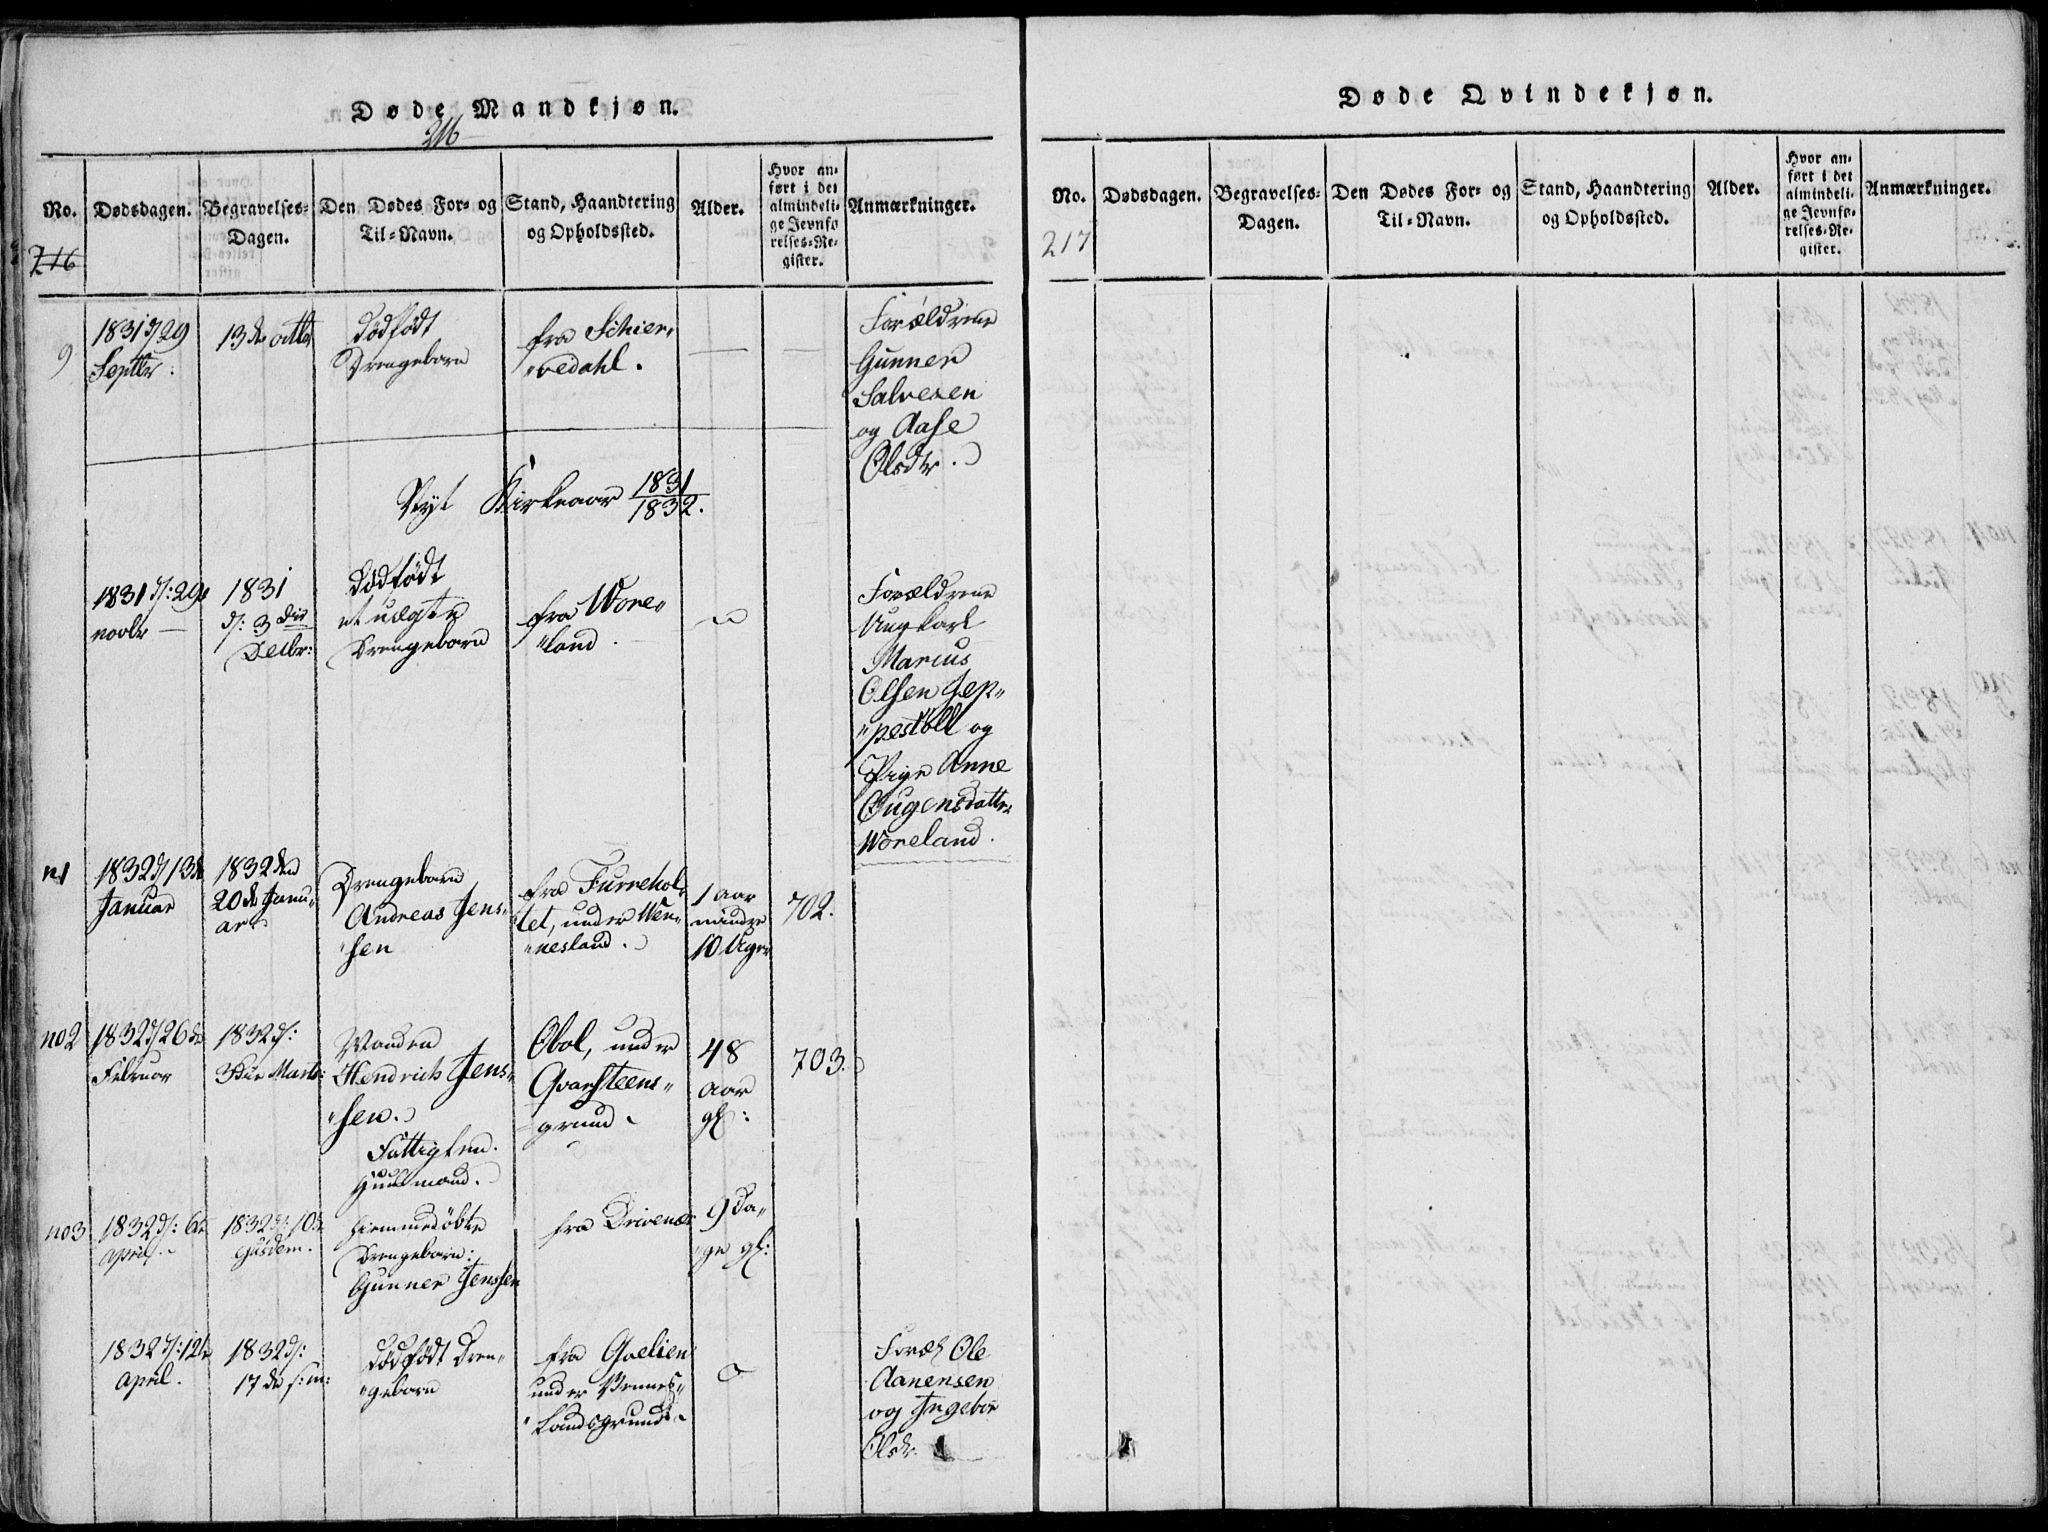 Døde Mandkjøn.
216
No. Dødsdagen. Begravelses-Dagen. Den Dødes For- og Til-Navn. Stand, Haandtering og Opholdssted. Alder. Hvor anført i det almindelige Jevnførelses-Register. Anmærkninger.
216
9
1831 d 29
Septbr.
13de octbr
dødfødt
Drengebarn
fra Schier„
„vedahl.
—
—
Forældrene
Gunner
Salvesen
og Aase
Olsdtr.
Nyt Kirkeaar 1831
1832.
1831 d: 29
novbr —
1831
d: 3die
Decbr:
Dødfødt
et uægte
Drengebarn
fra Wore„
„land.
Forældrene
Ungkarl
Marcus
Olsen Jep„
„pestøll og
Pige Anne
Ougensdattr
Woreland.
n1
1832 d 13de
Januar
1832 den
20de Janu„
ar
Drengebarn
Andreas Jens„
„sen
fra Furrehol„
tet, under Wen„
„nesland.
1 aar
mindre
10 Uger
702.
no2
1832 d 26de
Februar
1832 d:
3die Marts:
Manden
Hendrich Jens„
„sen.
Fattiglem.
Huusmand.
Obol, under
Qvarsteens„
grund
48
aar
gl:
703.
no3
1832 d: 6te
april.
1832 d: 10de
ejusdem.
hiemmedøbte
Drengebarn:
Gunner Jenssen
fra Drivenes
9 Da„
„ge gl:
1832 d: 12te
april.
1832 d:
17de s: m:
dødfødt Dren„
„gebarn
fra Gvelien
under Vennes„
„landsgrund
Foræl Ole
Aanensen
og Ingebor
Olsdr.
Døde Qvindekjøn.
No. Dødsdagen. Begravelses-Dagen. Den Dødes For- og Til-Navn. Stand, Haandtering og Opholdssted. Alder. Hvor anført i det almindelige Jevnførelses-Register. Anmærkninger.
217